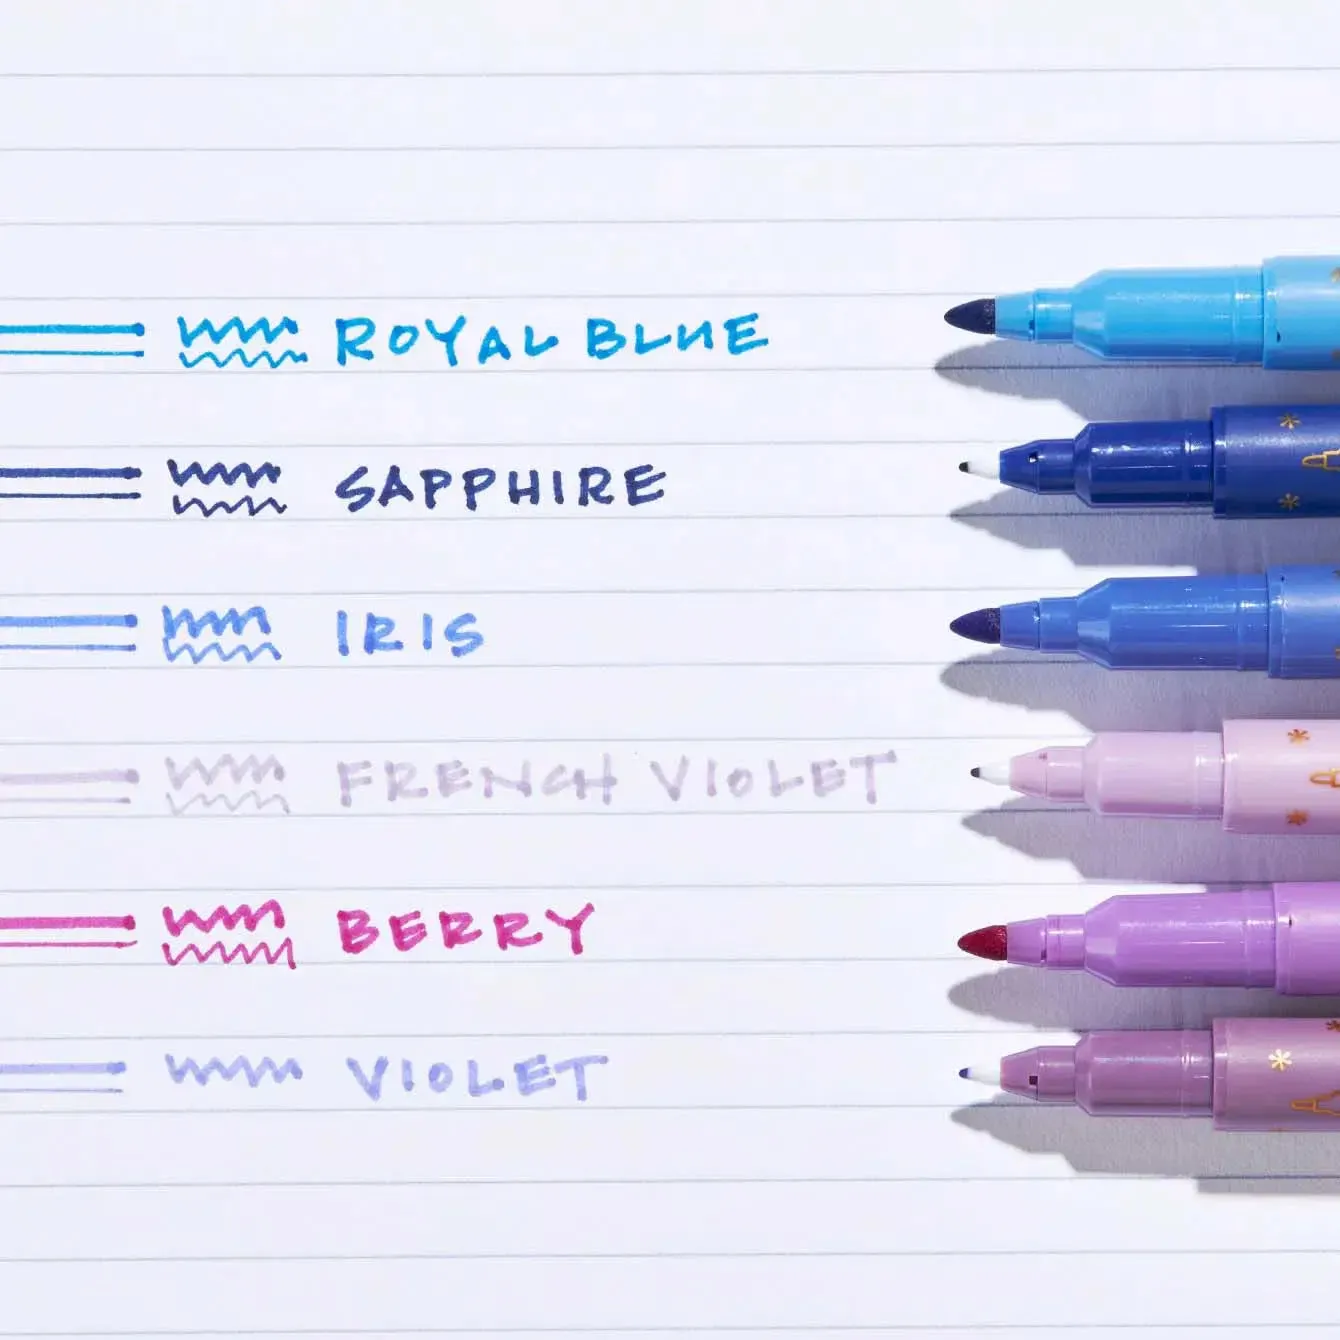 ROYAL BLUE
SAPPHIRE
IRIS
FRENCH VIOLET
BERRY
VIOLET